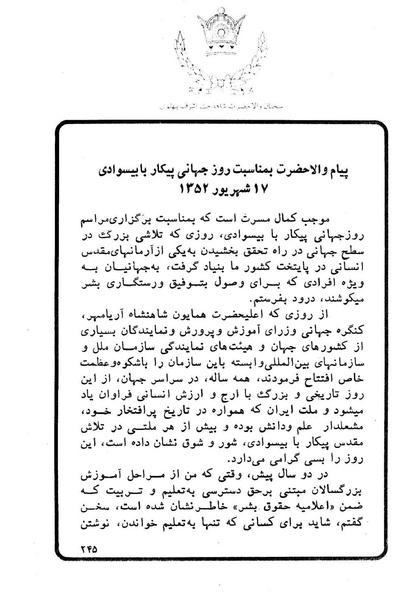 سخنان والاحضرت شاهدخت اشرف پهلوی
پیام والاحضرت بمناسبت روز جهانی پیکار با بیسوادی
۱۷ شهریور ۱۳۵۲
موجب کمال مسرت است که بمناسبت برگزاری مراسم
روز جهانی پیکار با بیسوادی، روزی که تلاشی بزرگ در
سطح جهانی در راه تحقق بخشیدن به یکی از آرمانهای مقدس
انسانی در پایتخت کشور ما بنیاد گرفت، به جهانیان به
ویژه افرادی که برای وصول بتوفیق ورستگاری بشر
میکوشند، درود بفرستم.
از روزی که اعلیحضرت همایون شاهنشاه آریامهر،
کنگره جهانی وزرای آموزش و پرورش و نمایندگان بسیاری
از کشورهای جهان و هیئت‌های نمایندگی سازمان ملل و
سازمانهای بین‌المللی وابسته باین سازمان را باشکوه وعظمت
خاص افتتاح فرمودند، همه ساله، در سراسر جهان، از این
روز تاریخی و بزرگ با ارج و ارزش انسانی فراوان یاد
میشود و ملت ایران که همواره در تاریخ پرافتخار خود،
مشعلدار علم ودانش بوده و بیش از هر ملتی در تلاش
مقدس پیکار با بیسوادی، شور و شوق نشان داده است، این
روز را بسی گرامی می‌دارد.
در دو سال پیش، وقتی که من از مراحل آموزش
بزرگسالان مبتنی برحق دسترسی به تعلیم و تربیت که
ضمن «اعلامیه حقوق بشر» خاطر نشان شده است، سخن
گفتم، شاید برای کسانی که تنها به تعلیم خواندن، نوشتن
۲۴۵